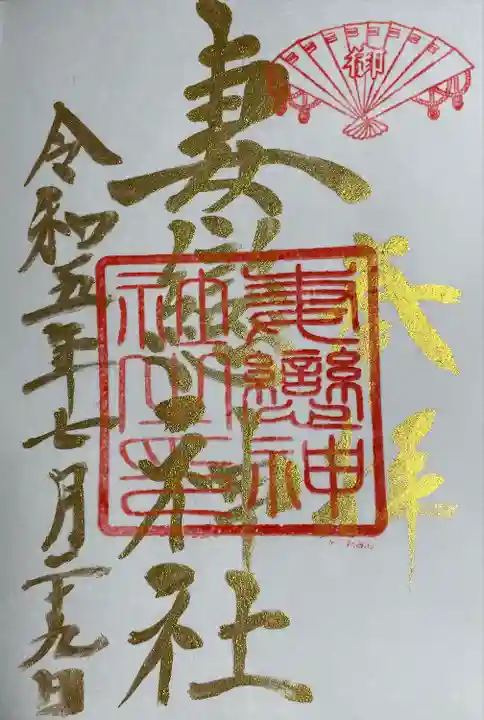 奉拝
妻戀神社
妻戀神
社之印
令和五年七月二十九日